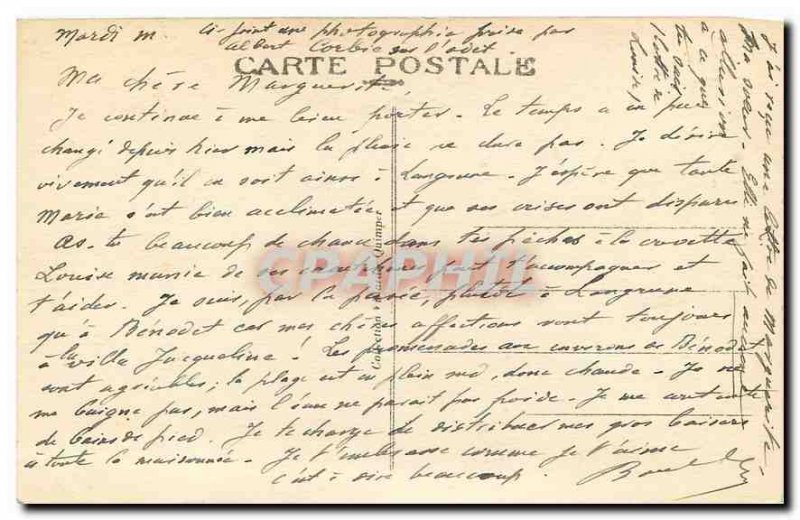 Mardi m. Ci-joint une photographie prise par
Albert Corbie sur l'Odet.
CARTE POSTALE
Ma chère Marguerite,
Je continue à me bien porter. Le temps a un peu
changé depuis hier mais la pluie ne dure pas. Je désire
vivement qu'il en soit ainsi à Langrune. J'espère que tante
Marie s'est bien acclimatée et que ses crises ont disparu
As-tu beaucoup de chance dans tes pêches à la crevette
Louise munie de ses chaussures peut t'accompagner et
t'aider. Je suis, par la pensée, plutôt à Langrune
qu'à Bénodet car mes chères affections vont toujours
à la villa Jacqueline! Les promenades aux environs de Bénodet
sont agréables; la plage est en plein midi, donc chaude. Je ne
me baigne pas, mais l'eau ne parait pas froide. Je me contente
de bains de pied. Je te charge de distribuer mes gros baisers
à toute la maisonnée. Je t'embrasse comme je t'aime
c'est à dire beaucoup.
J'ai reçu une lettre de Marguerite,
Ma soeur. Elle ne fait aucune
allusion
à ce que
Collection Quimper
CPAPHIL